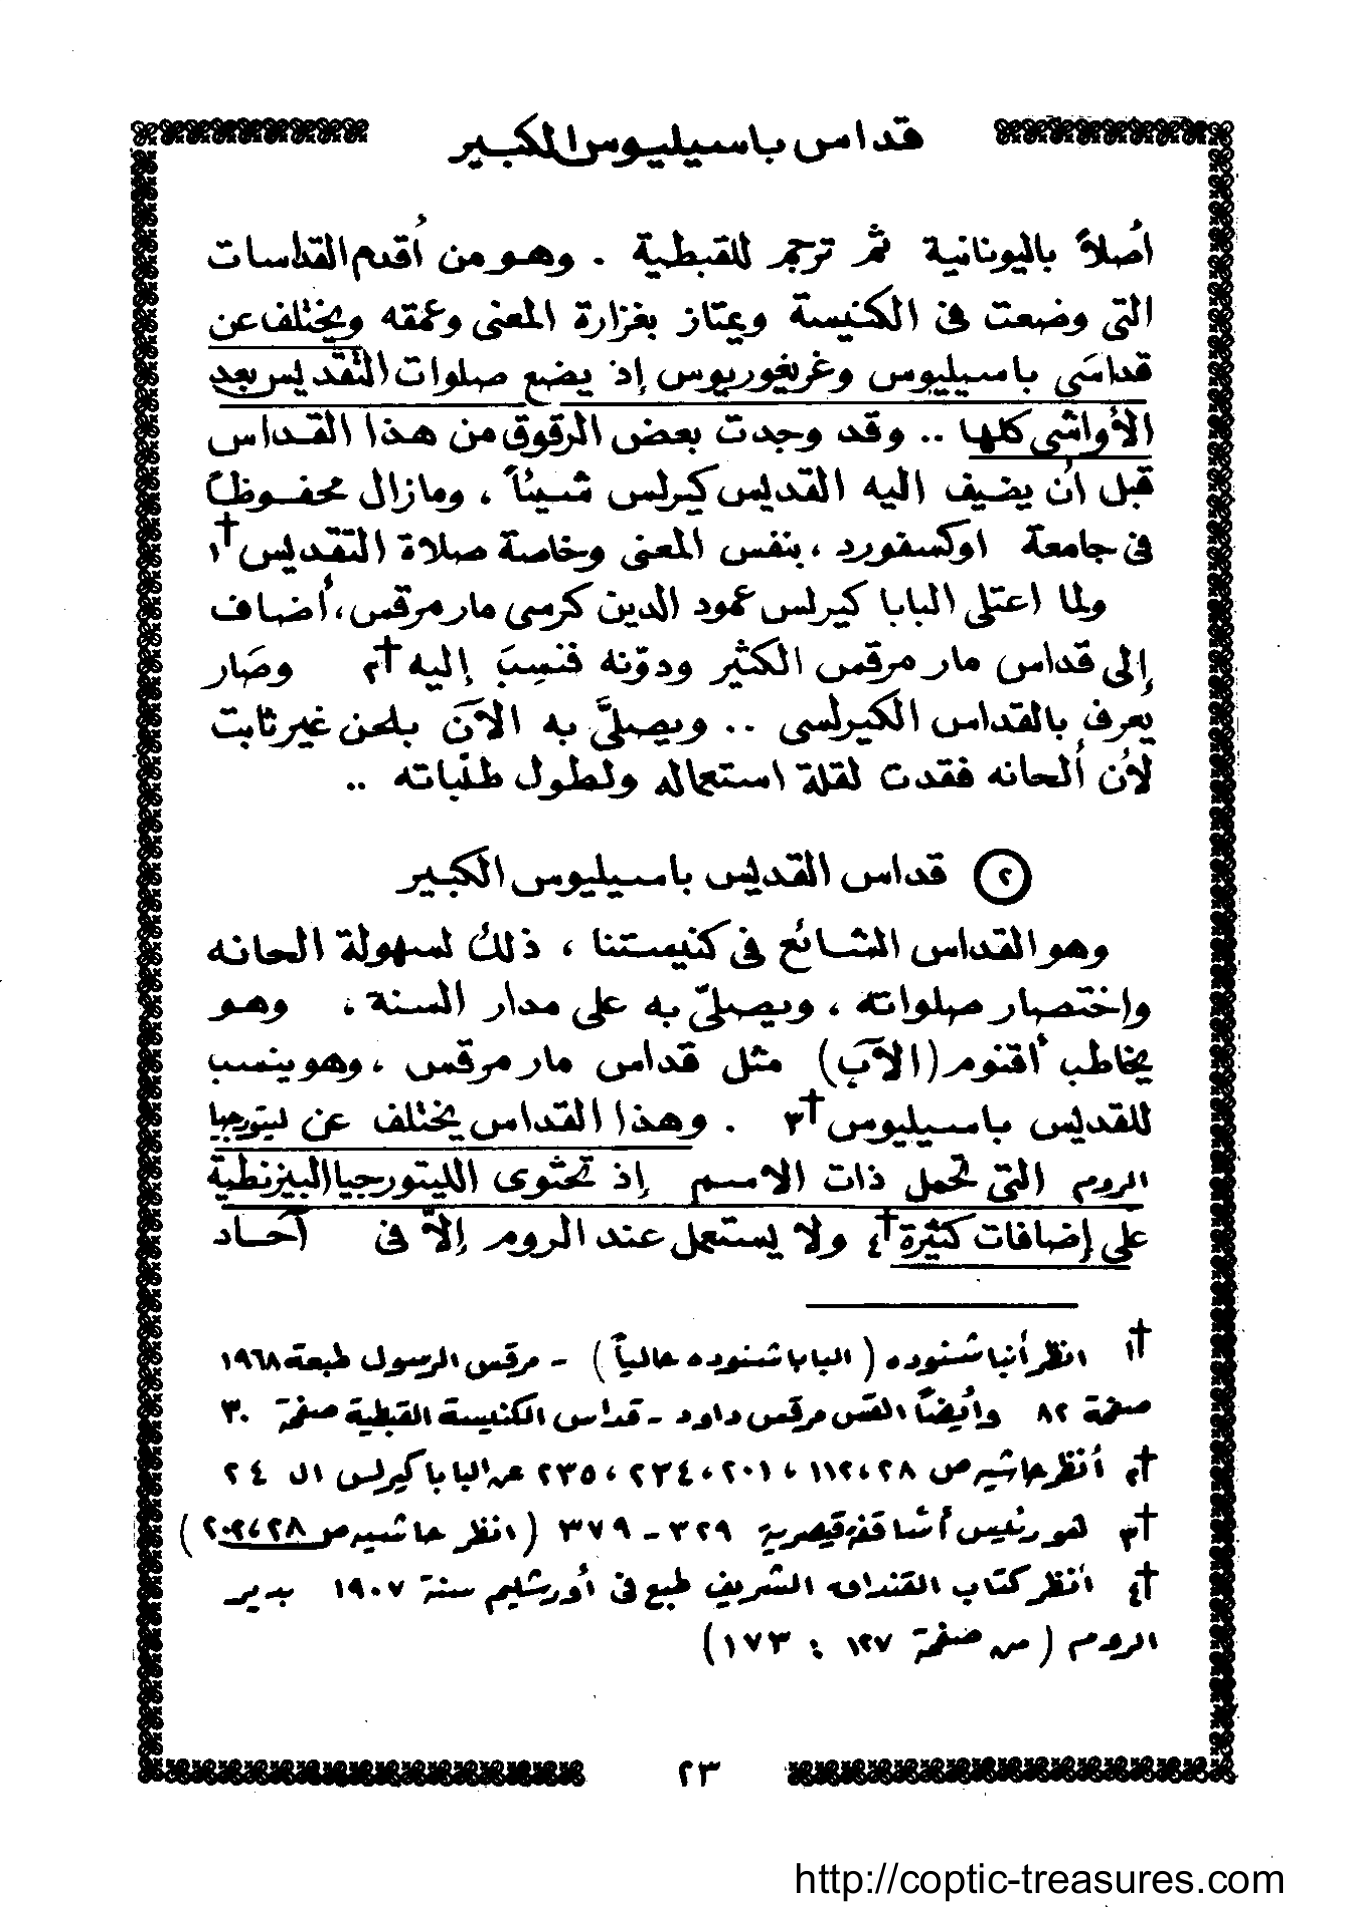 قداس باسيليوس الكبير
أصلاً باليونانية ثم ترجم للقبطية . وهو من أقدم القداسات
التى وضعت فى الكنيسة ويمتاز بغزارة المعنى وعمقه ويختلف عن
قداسَى باسيليوس وغريغوريوس إذ يضع صلوات التقديس بعد
الأواشى كلها .. وقد وجدت بعض الرقوق من هذا القداس
قبل أن يضيف اليه القديس كيرلس شيئاً ، ومازال محفوظاً
فى جامعة اوكسفورد ، بنفس المعنى وخاصة صلاة التقديس †١
ولما اعتلى البابا كيرلس عمود الدين كرسى مار مرقس ، أضاف
إلى قداس مار مرقس الكثير ودوّنه فنسِبَ إليه †٢ وصَار
يعرف بالقداس الكيرلسى .. ويصلىَّ به الآن بلحن غير ثابت
لأن ألحانه فقدت لقلة استعماله ولطول طلباته ..
٢ قداس القديس باسيليوس الكبير
وهو القداس الشائع فى كنيستنا ، ذلك لسهولة الحانه
واختصار صلواته ، ويصلىّ به على مدار السنة ، وهو
يخاطب أقنوم (الآب) مثل قداس مار مرقس ، وهو ينسب
للقديس باسيليوس †٣ . وهذا القداس يختلف عن ليتورجيا
الروم التى تحمل ذات الاسم إذ تحتوى الليتورجيا البيزنطية
على إضافات كثيرة †٤ ولا يستعمل عند الروم إلاَّ فى آحاد
†١ انظر أنبا شنوده ( البابا شنوده حالياً ) - مرقس الرسول طبعة ١٩٦٨
صفحة ٨٢ وأيضاً القس مرقس داود - قداس الكنيسة القبطية صفحة ٣٠
†٢ أنظر حاشيه ص ٢٨ ، ١١٢ ، ٢٠١ ، ٢٣٤ ، ٢٣٥ عن البابا كيرلس ال ٢٤
†٣ هو رئيس أساقفة قيصرية ٣٢٩ - ٣٧٩ ( انظر حاشيه ص ٢٨ ، ٢٠٢ )
†٤ أنظر كتاب القنداق الشريف طبع فى أورشليم سنة ١٩٠٧ بدير
الروم ( من صفحة ١٢٧ : ١٧٣ )
٢٣
http://coptic-treasures.com